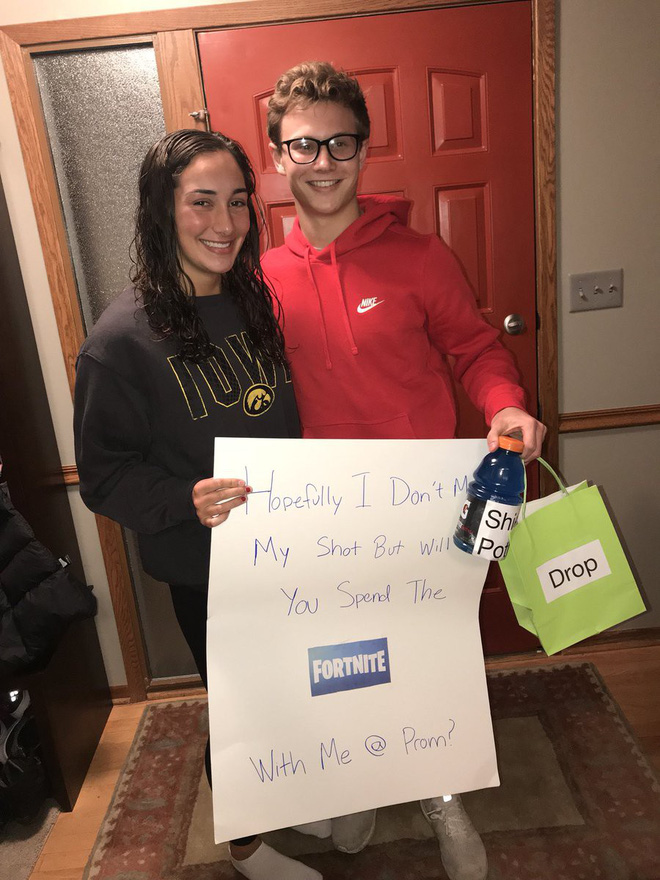 NIKE
Hopefully I Don't
My Shot But Will
You Spend The
FORTNITE
With Me @ Prom?
Drop